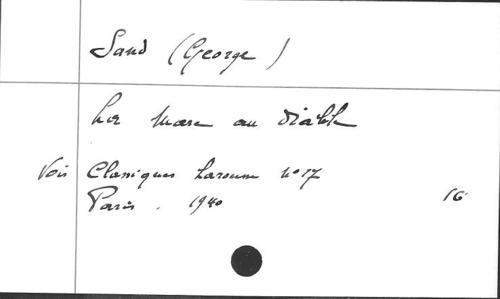 Sand (George)
La Mare au Diable
Voir Classiques Larousse n° 17
Paris. 1940 16